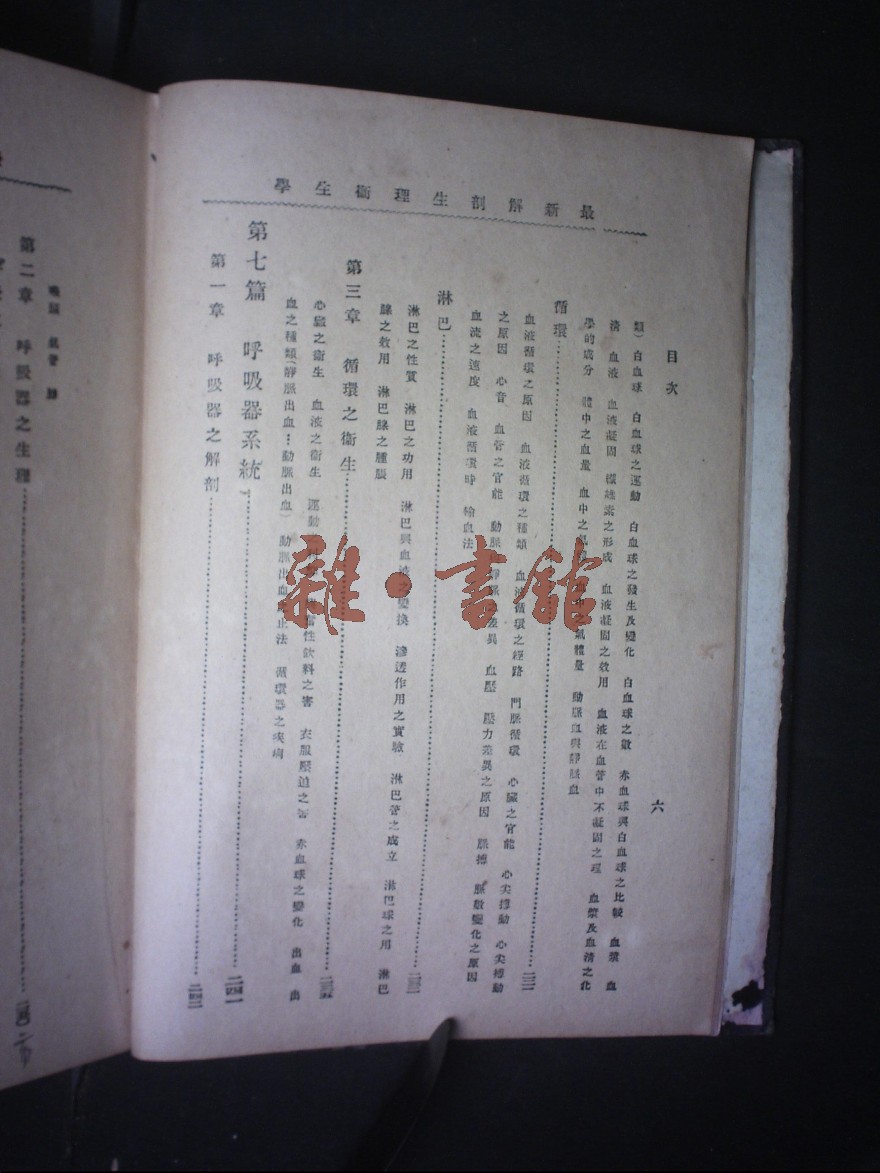 最新解剖生理衛生學
目次
六
類) 白血球 白血球之運動 白血球之發生及變化 白血球之數 赤血球與白血球之比較 血漿 血
清 血液 血液凝固 纖維素之形成 血液凝固之效用 血液在血管中不凝固之理 血漿及血清之化
學的成分 體中之血量 血中之氣體 血中之氣體量 動脈血與靜脈血
循環……二三一
血液循環之原因 血液循環之種類 血液循環之經路 門脈循環 心臟之官能 心尖搏動 心尖搏動
之原因 心音 血管之官能 動脈靜脈之差異 血壓 壓力差異之原因 脈搏 脈數變化之原因
血流之速度 血液循環時 輸血法
淋巴……
淋巴之性質 淋巴之功用 淋巴與血液之變換 滲透作用之實驗 淋巴管之成立 淋巴球之用 淋巴
腺之效用 淋巴腺之腫脹
第三章 循環之衛生……
心臟之衛生 血液之衛生 運動 奮性飲料之害 衣服壓迫之害 赤血球之變化 出血 出
血之種類(靜脈出血…動脈出血) 動脈出血 止法 循環器之疾病
第七篇 呼吸器系統……二四一
第一章 呼吸器之解剖……
喉頭 氣管 肺
第二章 呼吸器之生理……
雜·書館